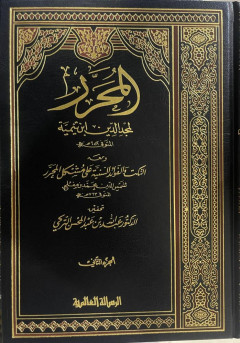 المحرر
لمجد الدين ابن تيمية
المتوفى ٦٥٢ هـ
ومعه
النكت والفوائد السنية على مشكل المحرر
لشمس الدين محمد بن مفلح
المتوفى ٧٦٣ هـ
تحقيق
الدكتور عبد الله بن عبد المحسن التركي
الجزء الثاني
الرسالة العالمية